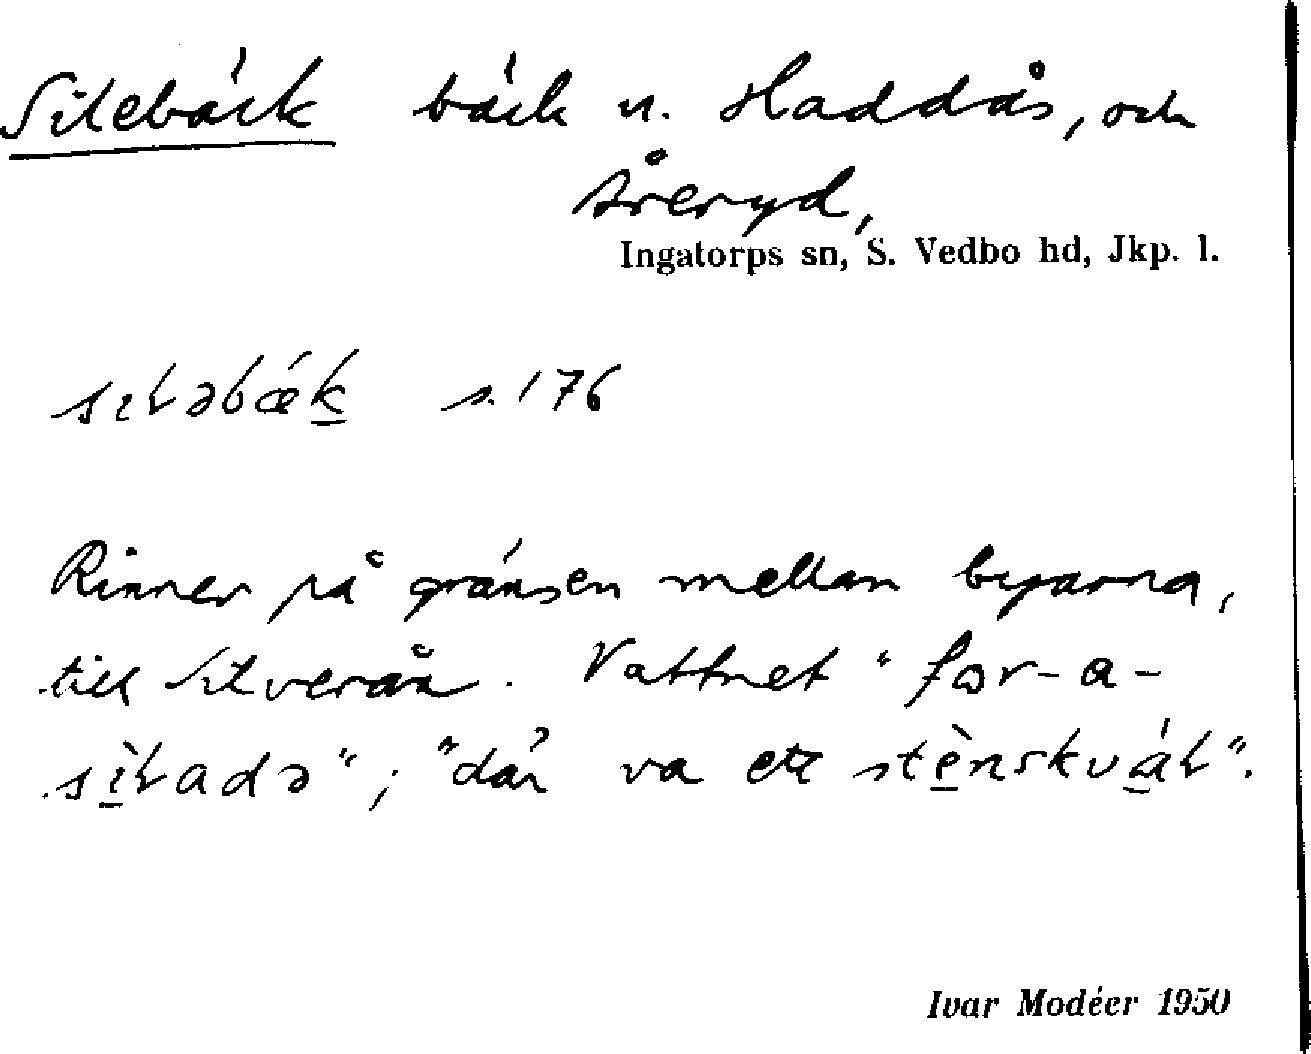 Silebäck bäck u. Haddås, och
Åreryd,
Ingatorps sn, S. Vedbo hd, Jkp. l.
sıƚəbǽk s. 176
Rinner på gränsen mellan byarna,
till Silverån. Vattnet "for-a-
sìƚadə"; "där va ett stènskváƚ".
Ivar Modéer 1950